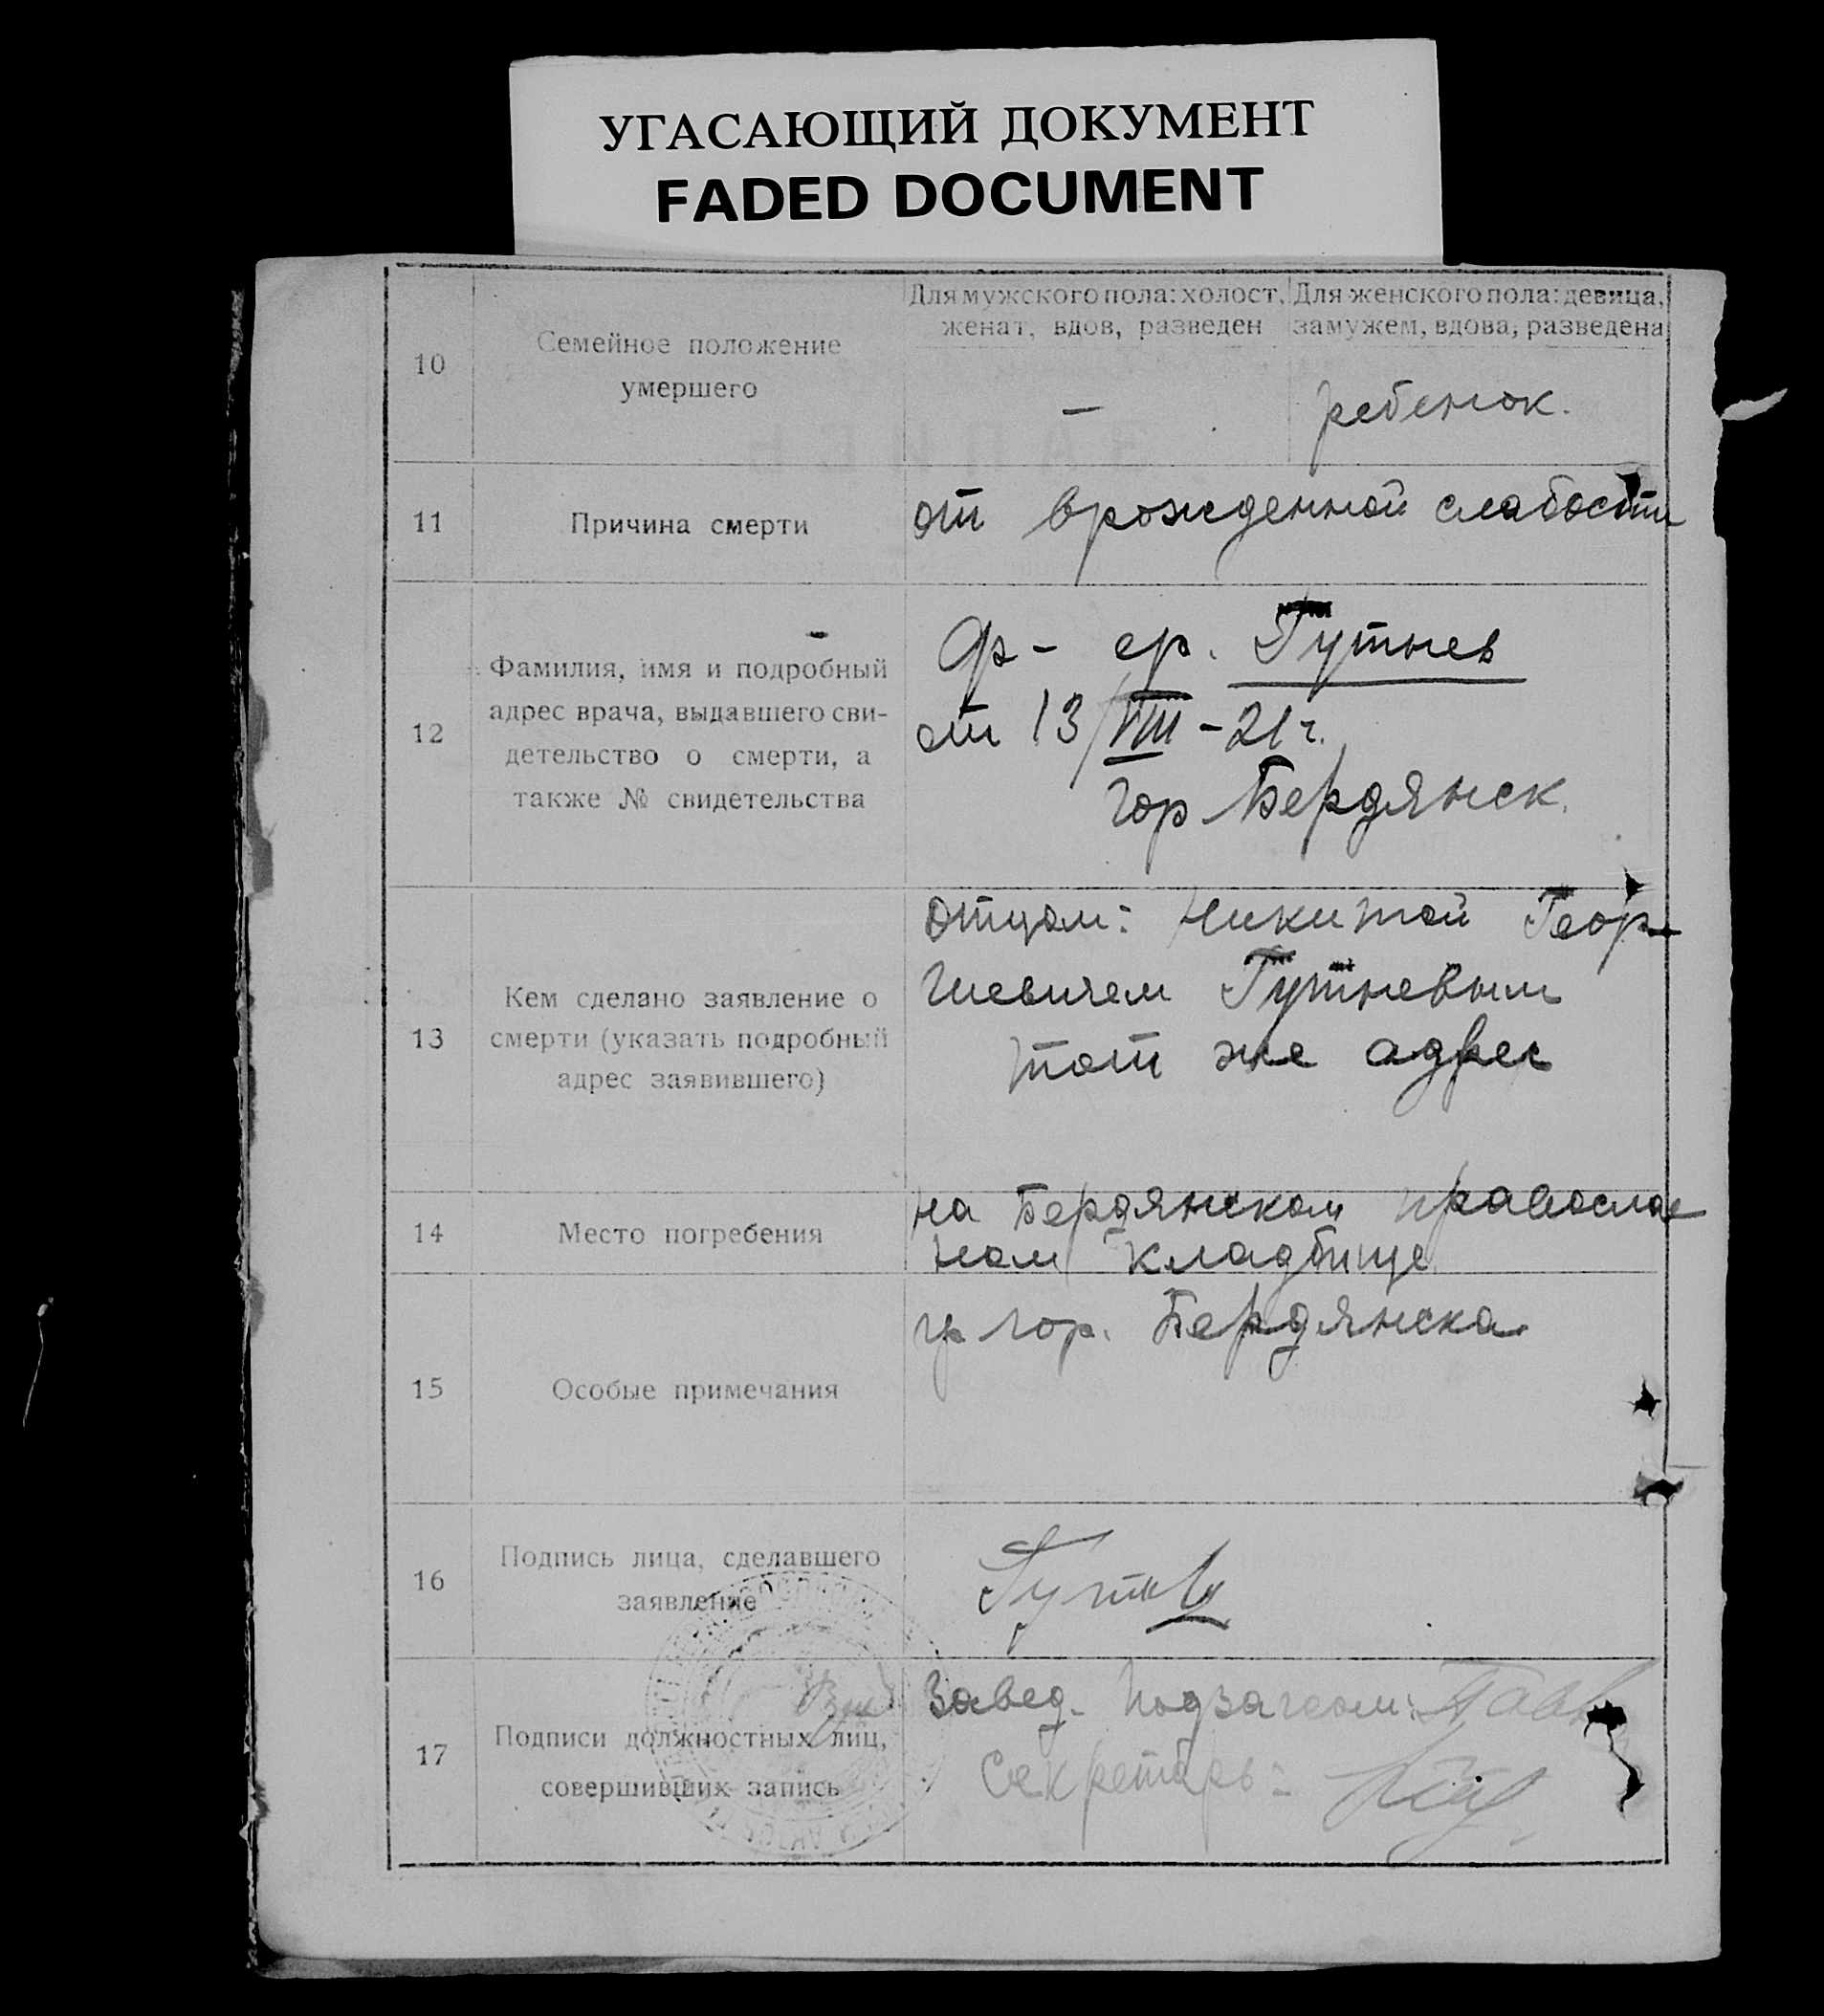 УГАСАЮЩИЙ ДОКУМЕНТ
FADED DOCUMENT
10
Семейное положение
умершего
Для мужского пола: холост,
женат, вдов, разведен
Для женского пола: девица,
замужем, вдова, разведена
—
ребенок.
11
Причина смерти
от врожденной слабости
12
Фамилия, имя и подробный
адрес врача, выдавшего сви-
детельство о смерти, а
также № свидетельства
Ф- ср. Гутнев
от 13/VIII - 21 г.
гор Бердянск.
13
Кем сделано заявление о
смерти (указать подробный
адрес заявившего)
отцом: Никитой Геор-
гиевичем Гутневым
тот же адрес
14
Место погребения
на Бердянском православ
ном кладбище
15
Особые примечания
гр гор. Бердянска
16
Подпись лица, сделавшего
заявление
17
Подписи должностных лиц,
совершивших запись
Завед. Подзагсом:
Секретарь: